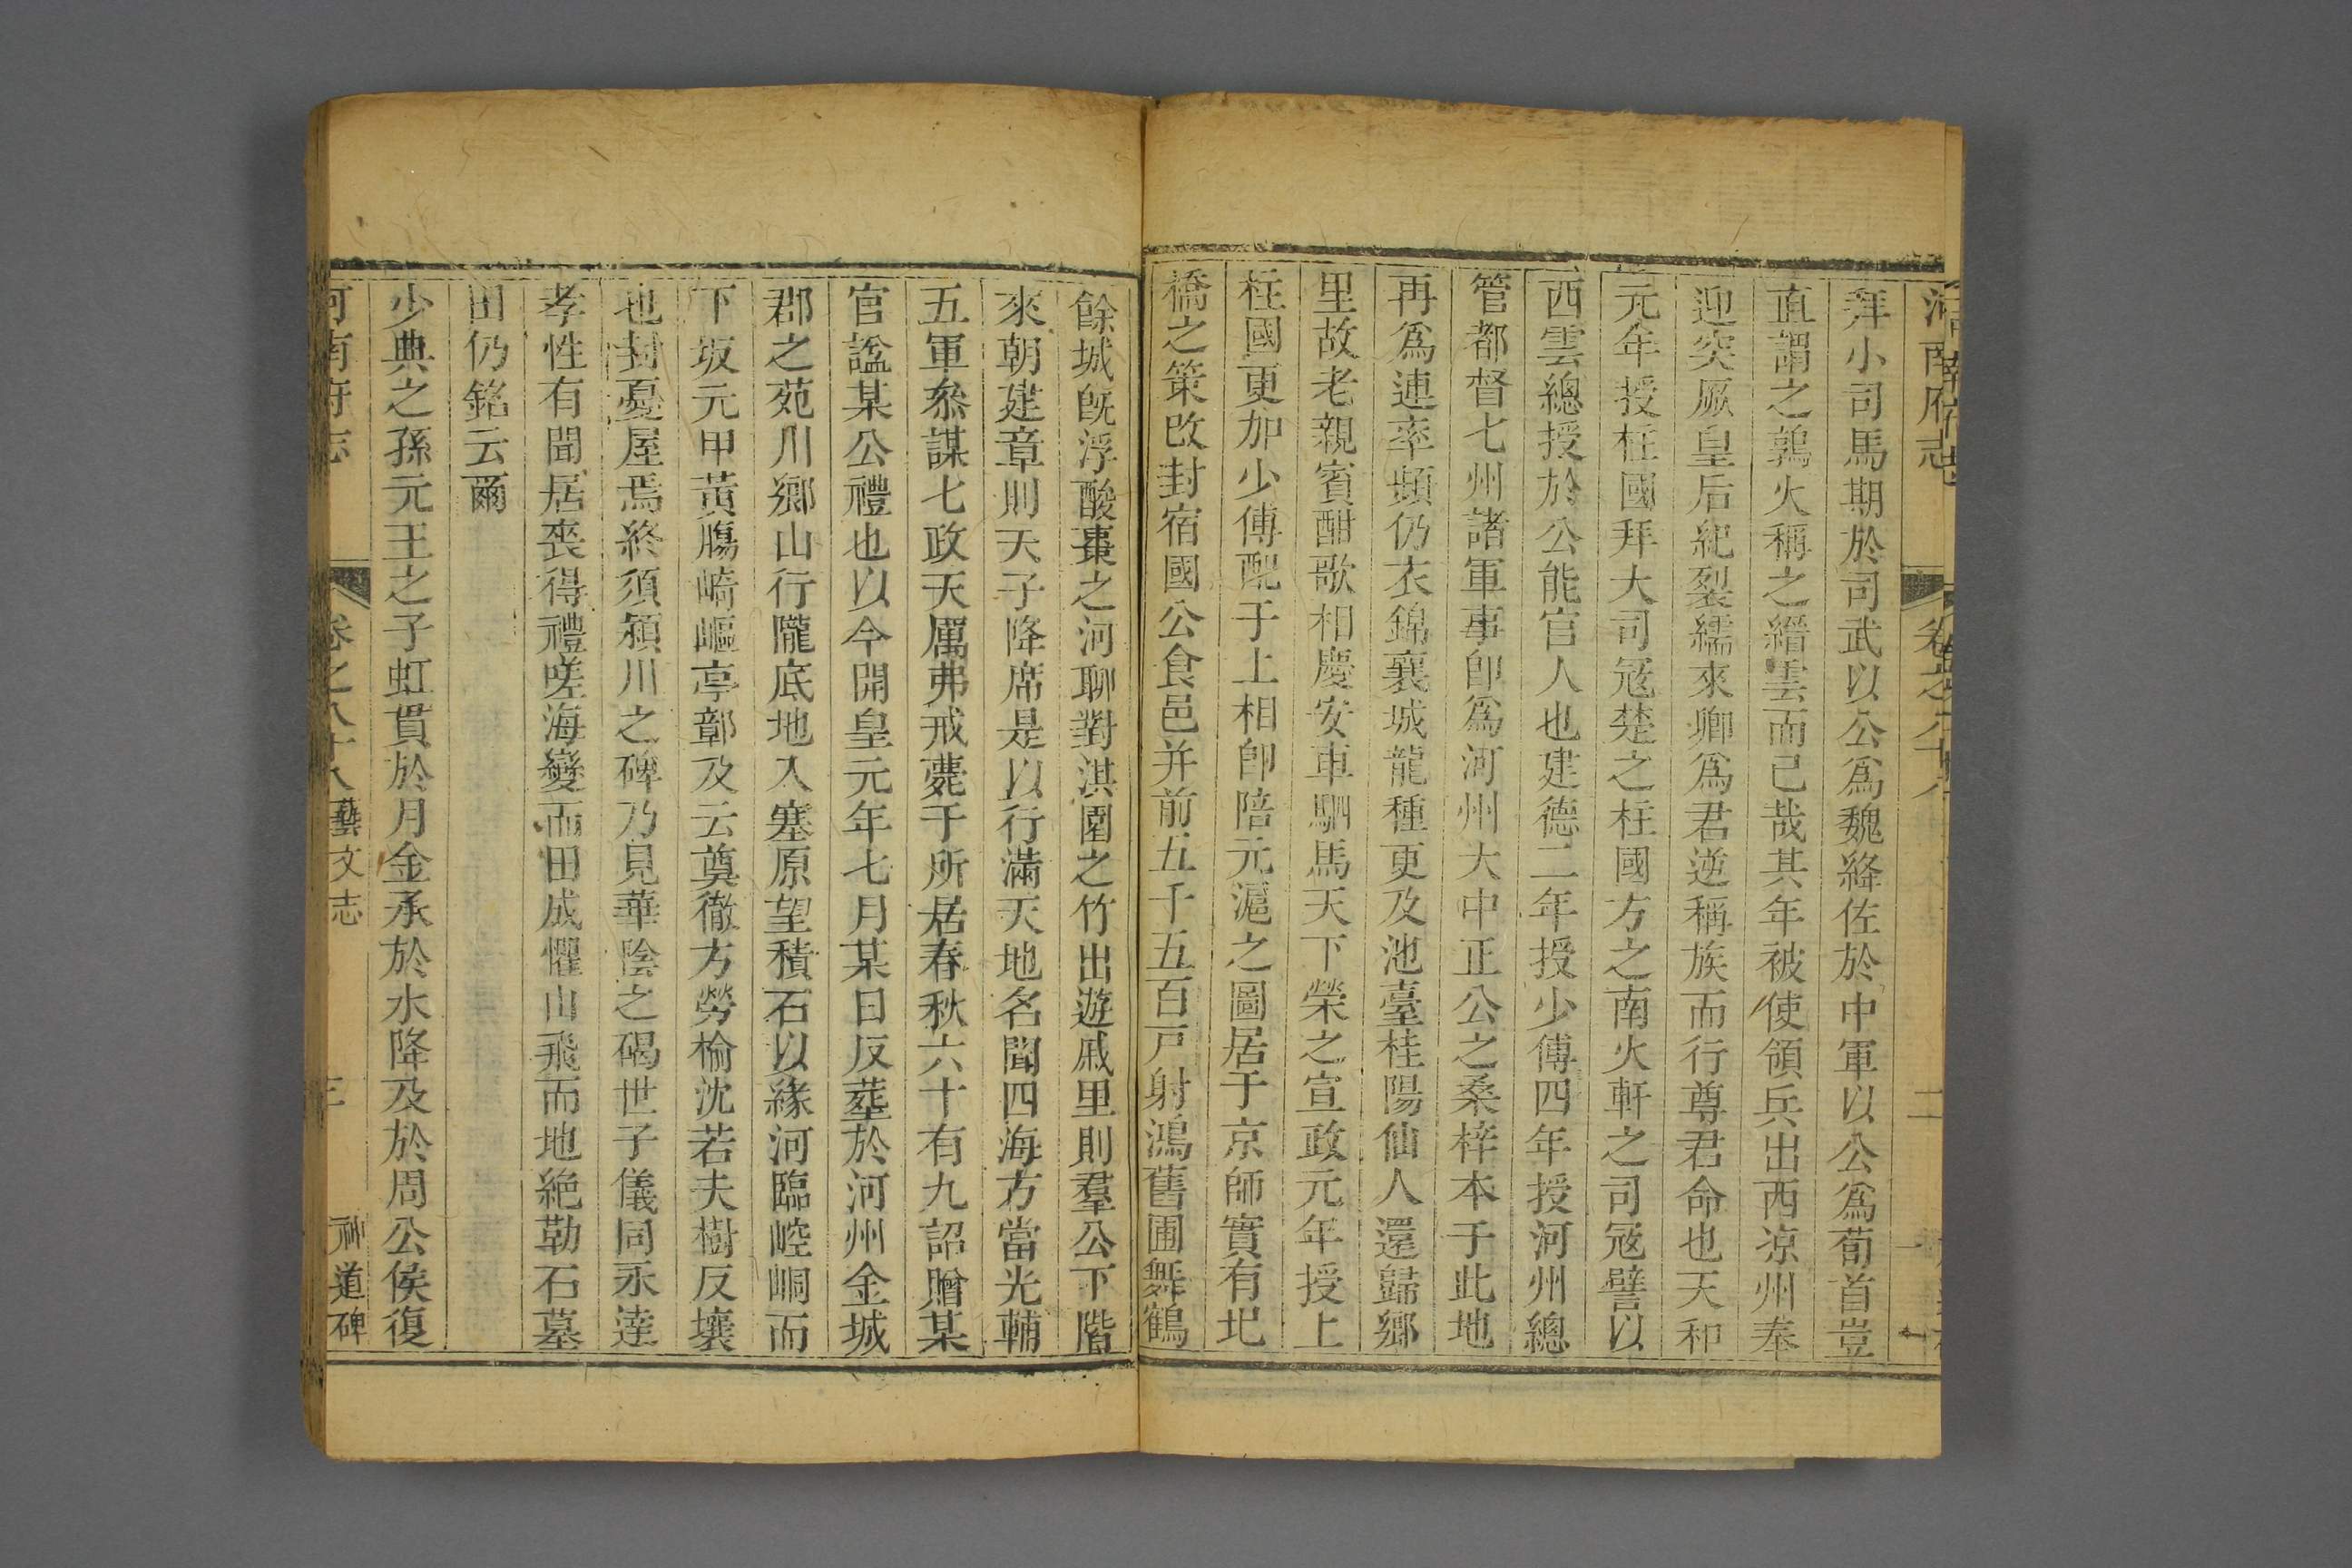 河南府志 卷之八十八 二
拜小司馬期於司武以公爲魏絳佐於中軍以公爲荀首豈
直謂之鶉火稱之縉雲而已哉其年被使領兵出西涼州奉
迎突厥皇后紀裂繻來卿爲君逆稱族而行尊君命也天和
元年授柱國拜大司冦楚之柱國方之南火軒之司冦譬以
西雲總授於公能官人也建德二年授少傅四年授河州總
管都督七州諸軍事卽爲河州大中正公之桑梓本于此地
再爲連率頻仍衣錦襄城龍種更及池臺桂陽仙人還歸鄉
里故老親賓酣歌相慶安車駟馬天下榮之宣政元年授上
柱國更加少傅配于上相卽陪元滬之圖居于京師實有圯
橋之策改封宿國公食邑并前五千五百戸射鴻舊圃舞鶴
餘城旣浮酸棗之河聊對淇園之竹出遊戚里則羣公下階
來朝建章則天子降席是以行滿天地名聞四海方當光輔
五軍叅謀七政天厲弗戒薨于所居春秋六十有九詔贈某
官諡某公禮也以今開皇元年七月某日反葬於河州金城
郡之苑川鄉山行隴底地入塞原望積石以緣河臨崆峒而
下坂元甲黃腸崎嶇亭鄣及云奠徹方勞楡沈若夫樹反壤
也封憂屋焉終須潁川之碑乃見華陰之碣世子儀同永達
孝性有聞居喪得禮嗟海變而田成懼山飛而地絶勒石墓
田仍銘云爾
少典之孫元王之子虹貫於月金承於水降及於周公侯復
河南府志 卷之八十八 藝文志 三 神道碑